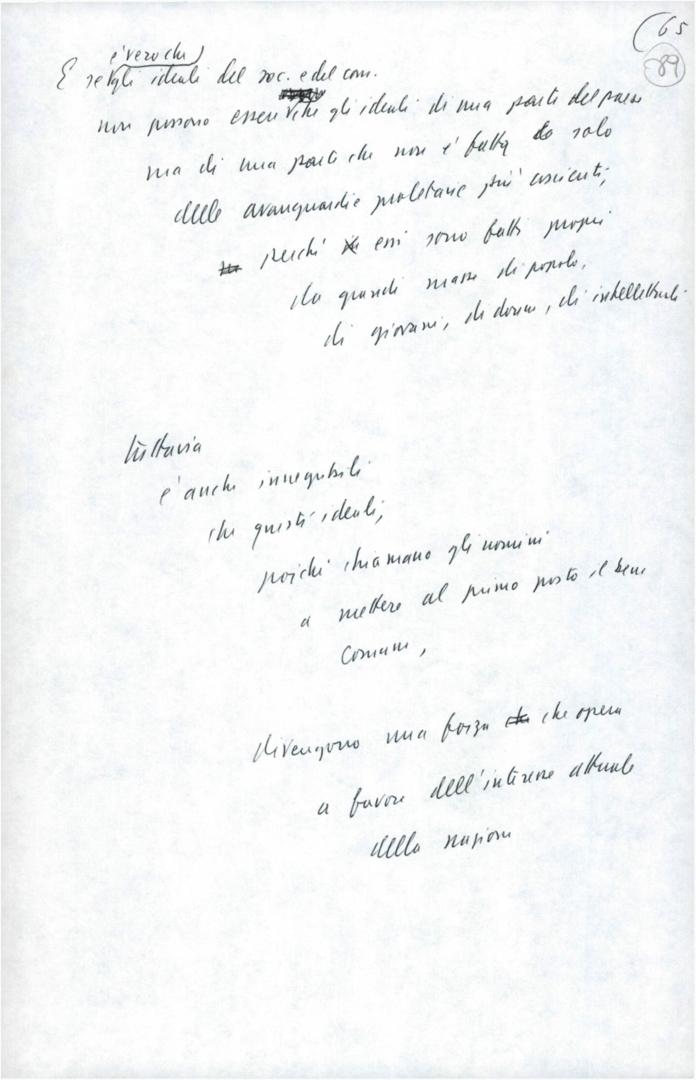 (65
89
è vero che
E se gli ideali del soc. e del com.
non possono essere che gli ideali di una parte del paese
ma di una parte che non è fatta solo
delle avanguardie proletarie più coscienti,
perché essi sono fatti propri
da grandi masse di popolo,
di giovani, di donne, di intellettuali
Tuttavia
è anche innegabile
che questi ideali,
poiché chiamano gli uomini
a mettere al primo posto il bene
comune,
divengono una forza che opera
a favore dell'interesse attuale
della nazione